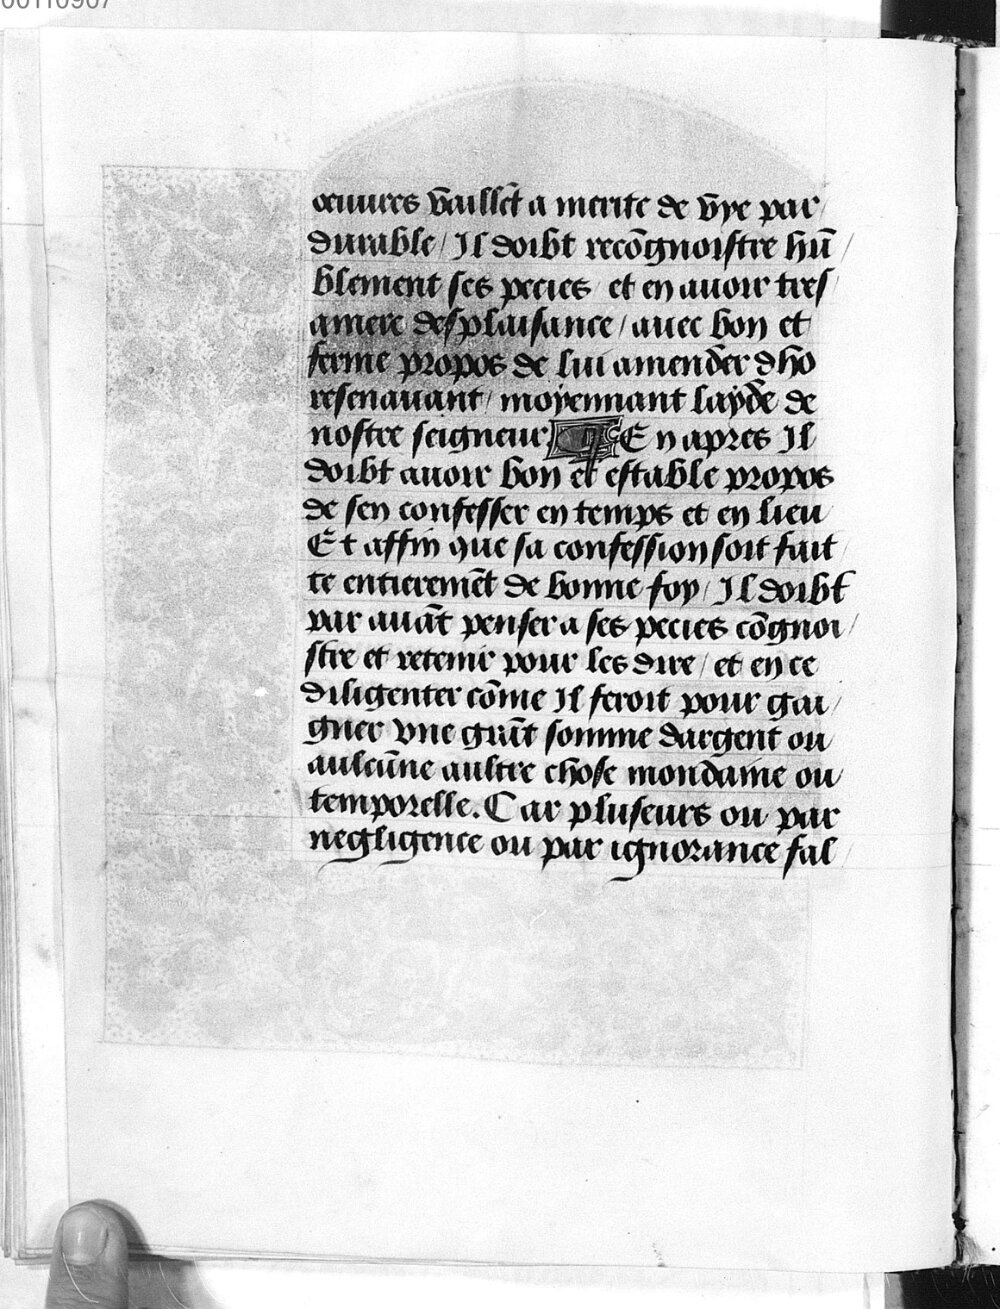 00110907
oeuures vaillēt a merite de vye par
durable / Il doibt recōgnoistre hū /
blement ses pecies et en auoir tres /
amere desplaisance / auec bon et
ferme propos de lui amender dho
resenauant / moyennant layde de
nostre seigneur En apres Il
doibt auoir bon et estable propos
de sen confesser en temps et en lieu
Et affin que sa confession soit fait
te entieremēt de bonne foy / Il doibt
par auāt penser a ses pecies cōgnoi /
stre et retenir pour les dire / et en ce
diligenter cōme Il feroit pour gai /
gner vne grāt somme dargent ou
aulcūne aultre chose mondaine ou
temporelle. Car pluseurs ou par
negligence ou par ignorance fal /